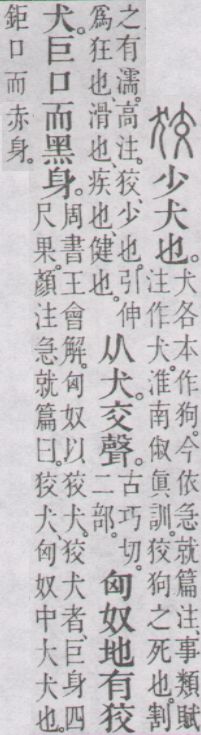 狡
少犬也。
犬各本作狗。今依急就篇注、事類賦
注作犬。淮南俶眞訓。狡狗之死也。割
之有濡。高注。狡、少也。引伸
爲狂也、滑也、疾也、健也。
从犬。交聲。
古巧切。
二部。
匈奴地有狡
犬。巨口而黑身。
周書王會解。匈奴以狡犬。狡犬者、巨身四
尺果。顏注急就篇曰。狡犬、匈奴中大犬也。
鉅口而赤身。